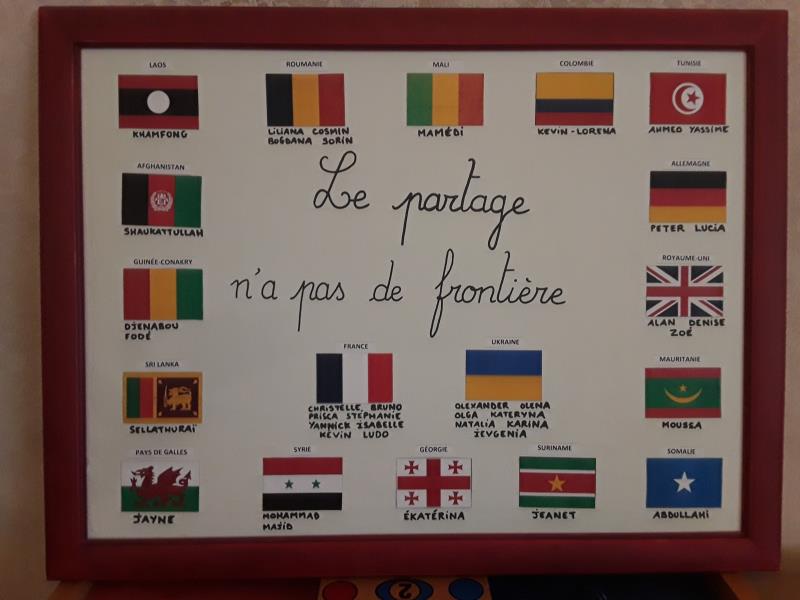 LAOS
KHAMFONG
ROUMANIE
LILIANA COSMIN
BOGDANA SORIN
MALI
MAMÉDI
COLOMBIE
KEVIN-LORENA
TUNISIE
AHMED YASSIME
AFGHANISTAN
SHAUKATTULLAH
Le partage
n'a pas de frontière
ALLEMAGNE
PETER LUCIA
GUINÉE-CONAKRY
DJENABOU
FODÉ
ROYAUME-UNI
ALAN DENISE
ZOÉ
SRI LANKA
SELLATHURAÏ
FRANCE
CHRISTELLE, BRUNO
PRISCA STEPHANIE
YANNICK ISABELLE
KEVIN LUDO
UKRAINE
OLEXANDER OLENA
OLGA KATERYNA
NATALIA KARINA
IEVGENIA
MAURITANIE
MOUSSA
PAYS DE GALLES
JAYNE
SYRIE
MOHAMMAD
MAJID
GÉORGIE
ÉKATÉRINA
SURINAME
JEANET
SOMALIE
ABDULLAHI
2